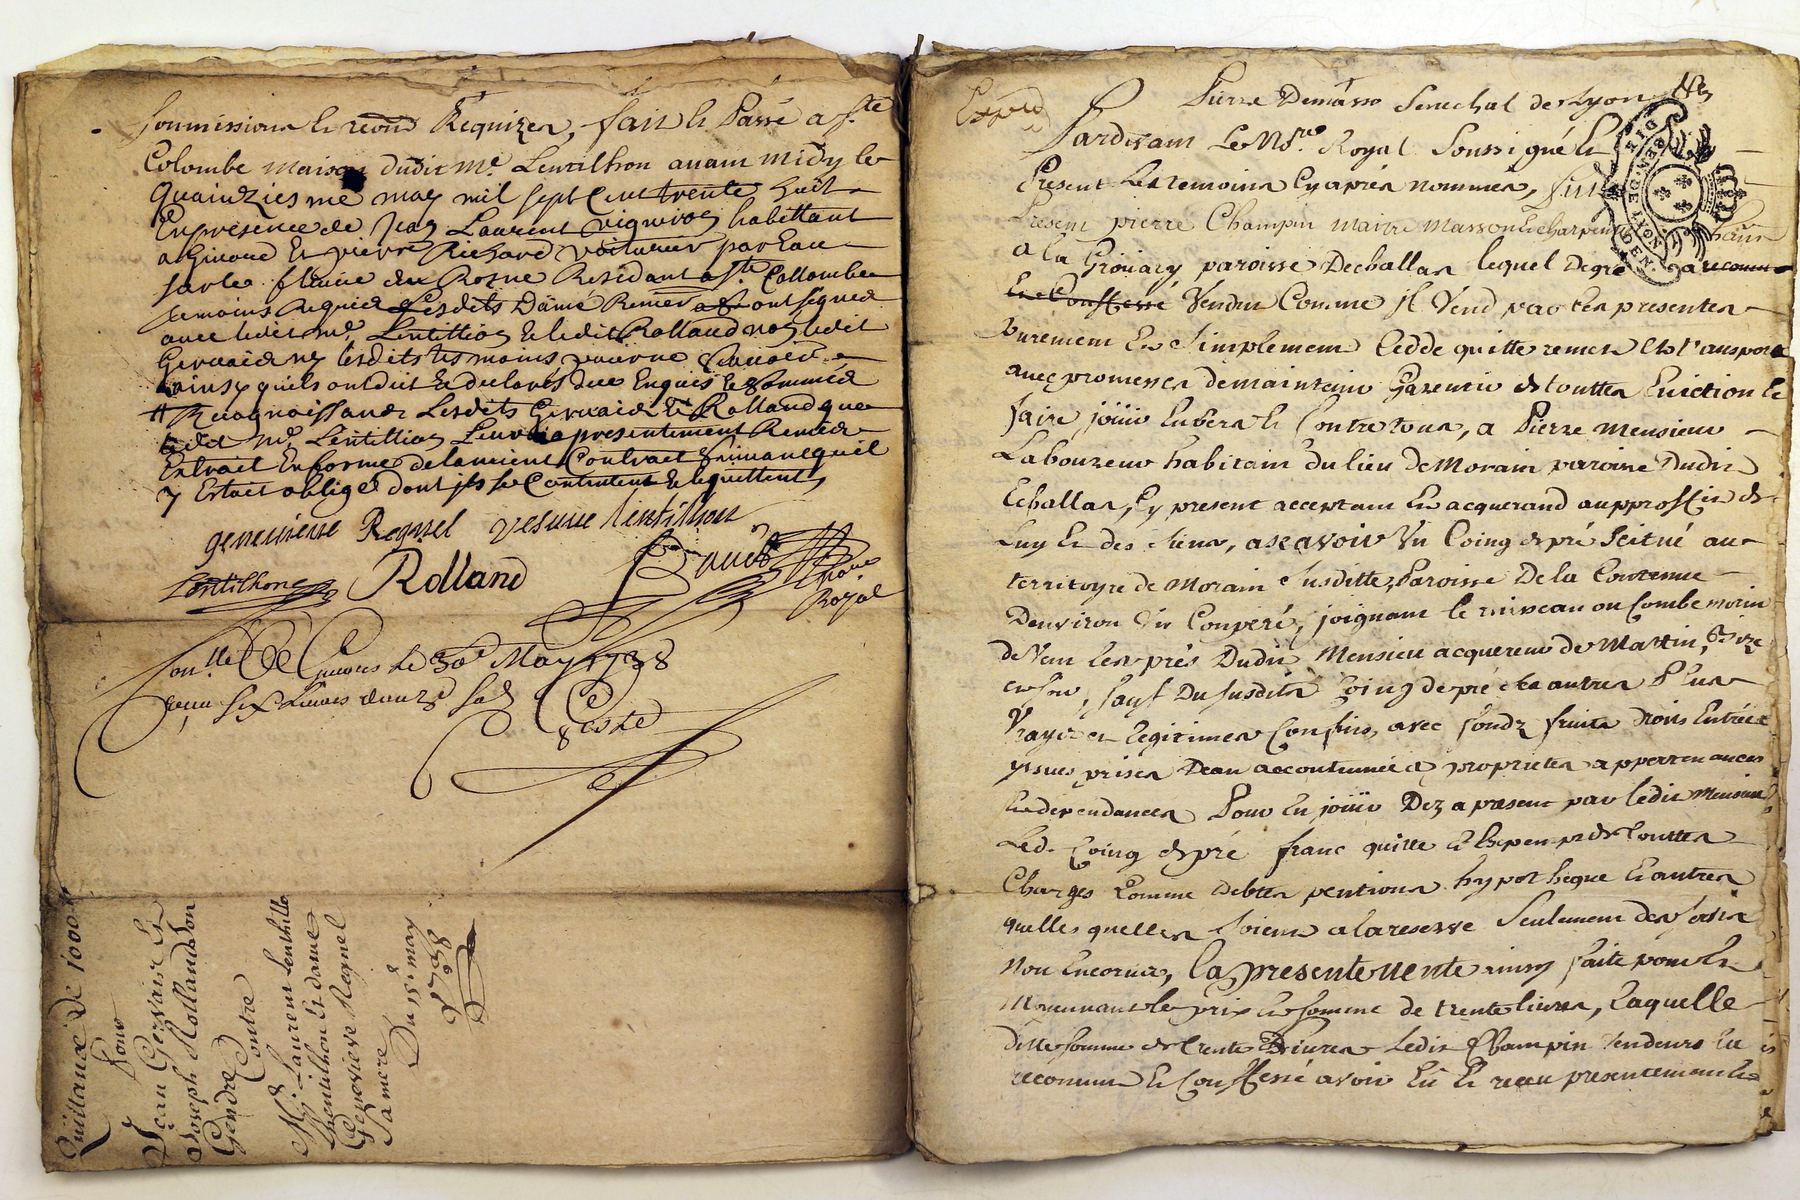 soumissions & renon Requizes, fait & Passé a Ste
Colombe maison dudit Me. Lentilhon avant midy le
quainziesme may mil sept cent trente huit
En presence de Jean Laurent vigneron habittant
a Givord Et pierre Richard voiturier par Eau
sur le fleuve du Rosne Residant a Ste. Collombe
temoins Requis Lesdits Dame Renier ont signéz
avec ledit Me. Lentillion & ledit Rolland non ledit
Gervaid ny lesdits tesmoins pour ne scavoir
ainsy quils ont dit & declarés de ce Enquis & sommés
# Recognoissance Lesdits Gervaid & Rolland que
ledit Me. Lentillion Leur a presentement Remis
Extrait En forme delancient Contract qu'il
y Estoit obligé dont ils se Contentent & le quittent
genevieve Regnel vesuve lentilhon
Lentilhon Rolland
nore
Royal
Conlle. a Givors le 30e May 1738
reçu six livres douze sols
Coste
Quittance De 1000 #
Pour
Jean Gervais Et
Joseph Rolland son
Gendre
Contre
Me. Laurent Lenthillon
Et dame
Genevieve Regnel
Sa mere
Du 15e may
1738
Expedié
Pierre Demasso Senechal de Lyon
Pardevant Le Nre. Royal Soussigné &
Present Les temoins Cy aprés nommés, fut
Present pierre Champin maitre masson & charpentier
a la Grouary paroisse Dechallas lequel degré a reconnu
Vendu Comme jl Vend par les presentes
purement Et Simplement Cedde quitte remet Et transporte
avec promesses de maintenir Garentir de touttes Eviction &
faire joüir Envers & Contre tous, a Pierre Mensieu
Laboureur habitant du lieu de Morain paroisse Dudit
Echallas, Cy present acceptant Et acquerand au proffit de
Luy Et des siens, ascavoir Un Coing de pré Scitué au
territoyre de Morain Susditte Paroisse De la Contenue
Denviron Un Couperé, joignant le ruisseau ou Combe morin
de Vent les prés Dudit Mensieu acquereur de Mattin, & bize
et soir, sauf Du susdit Coing de pré ses autres Plus
Vrays et legitimes Confins, avec fondz fruits droits Entrées
yssues prises Deau accoutumées proprietés appartenances
Et dependances Pour En joüir Dez a present par ledit Mensieu
Led. Coing de pré franc quitte & Exempt de touttes
Charges Comme debtes pentions hypotheque Et autres
quelles quelles soient a la reserve Seulement des servis
non Encorus, La presente Vente ainsy faite pour &
Moyennant le prix et somme de trente livres, Laquelle
ditte somme de trente Livres ledit Champin Vendeur En
reconnu & Confessé avoir Eü & reçu presentement
GEN. DE LYON